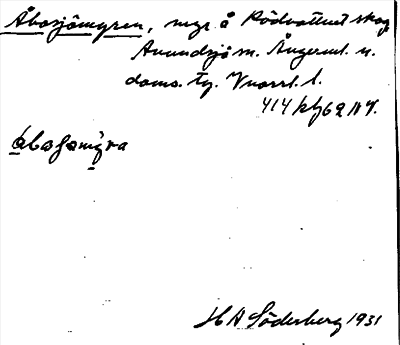 Åbosjömyren, myr å Rödvattnet skog
Anundsjö sn. Ångerml. n.
doms. tg. Vnorrl. l.
414 62 NV.
åbosömyra
H A Söderberg 1931